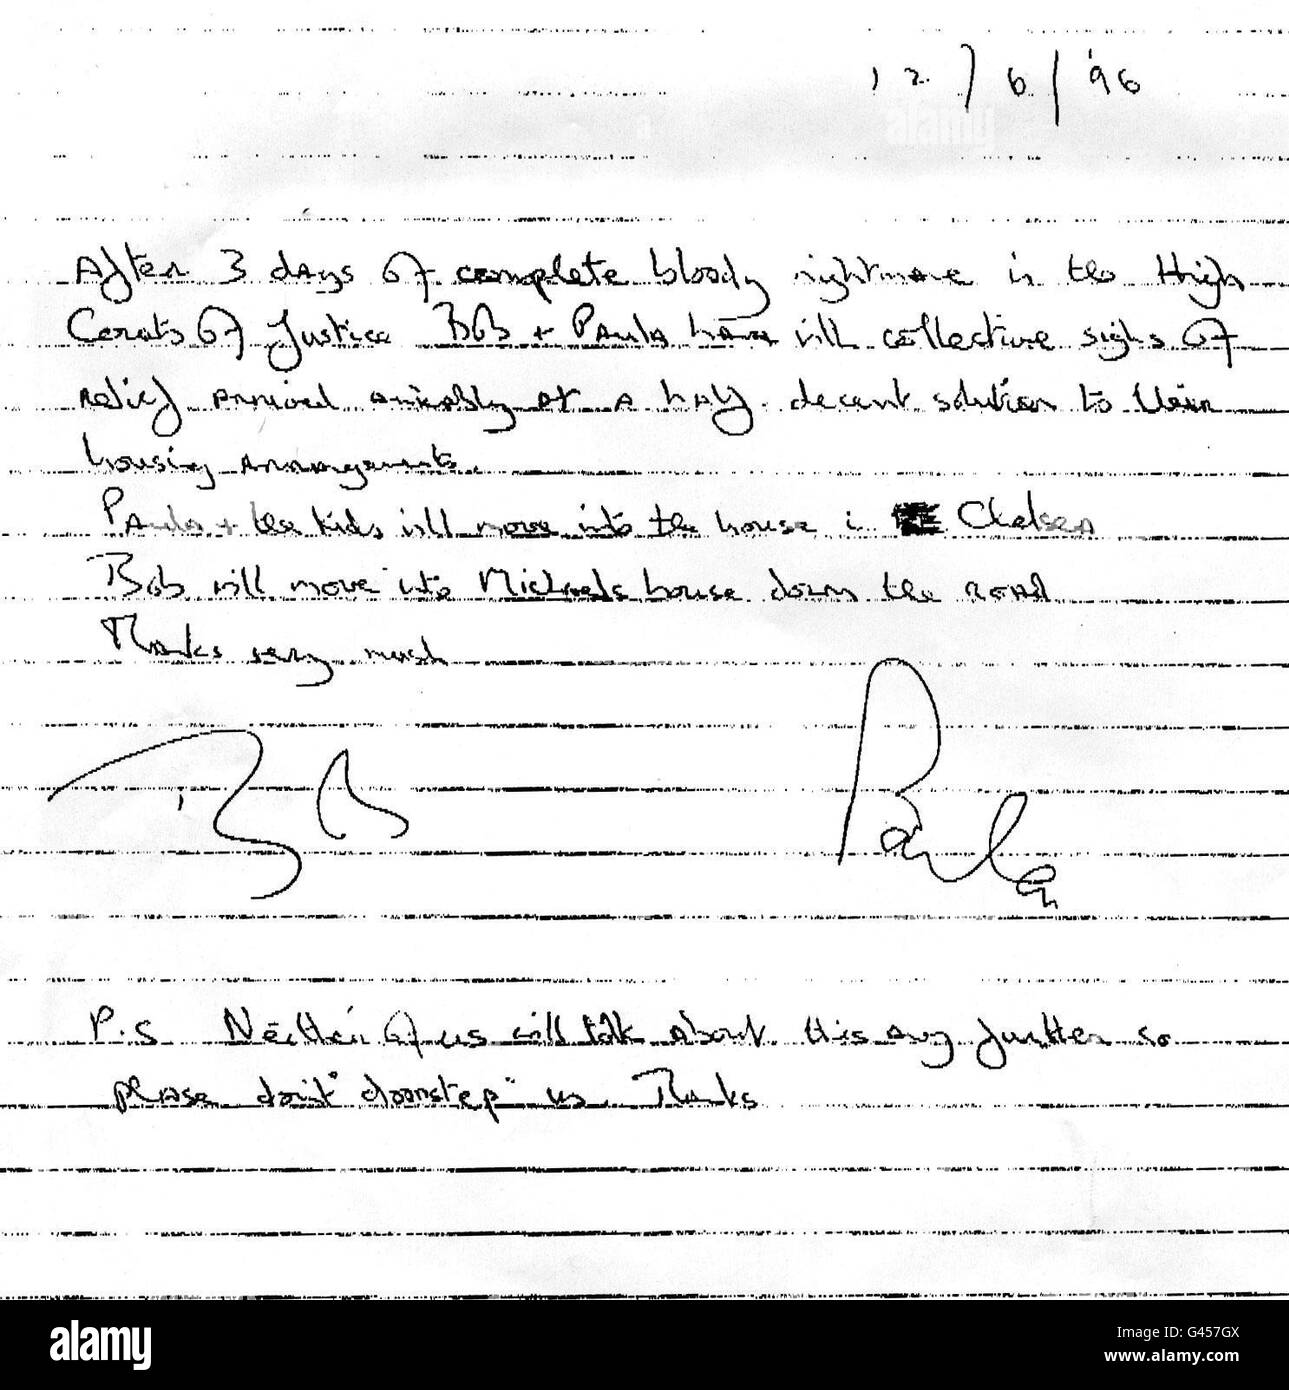 12/6/'96
After 3 days of complete bloody nightmare in the High
Courts of Justice Bob + Paula have with collective sighs of
relief arrived amicably at a half decent solution to their
housing arrangements.
Paula + the kids will move into the house i Chelsea
Bob will move into Michaels house down the road
Thanks very much
Bob Paula
P.S Neither of us will talk about this any further so
please don't "doorstep" us. Thanks
alamy
alamy
Image ID: G457GX
www.alamy.com